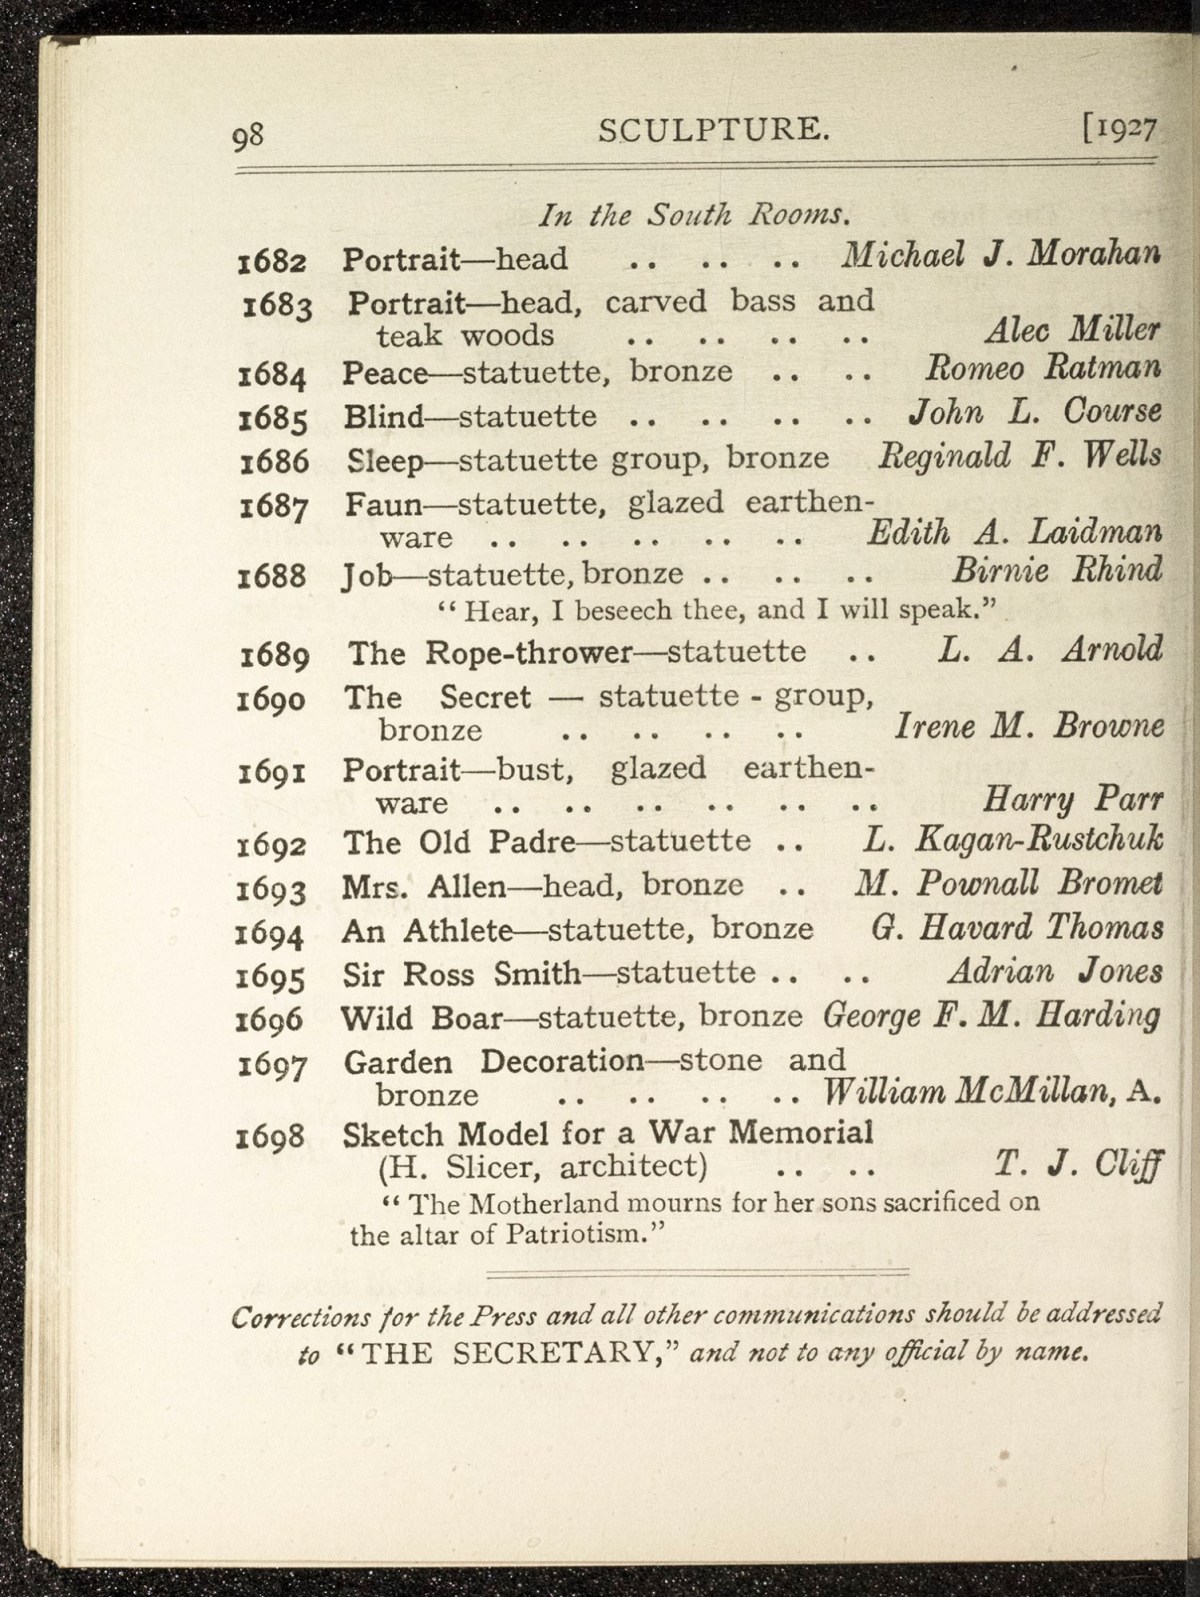 98 SCULPTURE. [1927
In the South Rooms.
1682 Portrait—head .. .. .. Michael J. Morahan
1683 Portrait—head, carved bass and
teak woods .. .. .. .. Alec Miller
1684 Peace—statuette, bronze .. .. Romeo Ratman
1685 Blind—statuette .. .. .. .. John L. Course
1686 Sleep—statuette group, bronze Reginald F. Wells
1687 Faun—statuette, glazed earthen-
ware .. .. .. .. .. Edith A. Laidman
1688 Job—statuette, bronze .. .. .. Birnie Rhind
“Hear, I beseech thee, and I will speak.”
1689 The Rope-thrower—statuette .. L. A. Arnold
1690 The Secret — statuette - group,
bronze .. .. .. .. Irene M. Browne
1691 Portrait—bust, glazed earthen-
ware .. .. .. .. .. .. Harry Parr
1692 The Old Padre—statuette .. L. Kagan-Rustchuk
1693 Mrs. Allen—head, bronze .. M. Pownall Bromet
1694 An Athlete—statuette, bronze G. Havard Thomas
1695 Sir Ross Smith—statuette .. .. Adrian Jones
1696 Wild Boar—statuette, bronze George F. M. Harding
1697 Garden Decoration—stone and
bronze .. .. .. .. William McMillan, A.
1698 Sketch Model for a War Memorial
(H. Slicer, architect) .. .. T. J. Cliff
“The Motherland mourns for her sons sacrificed on
the altar of Patriotism.”
Corrections for the Press and all other communications should be addressed
to “THE SECRETARY,” and not to any official by name.